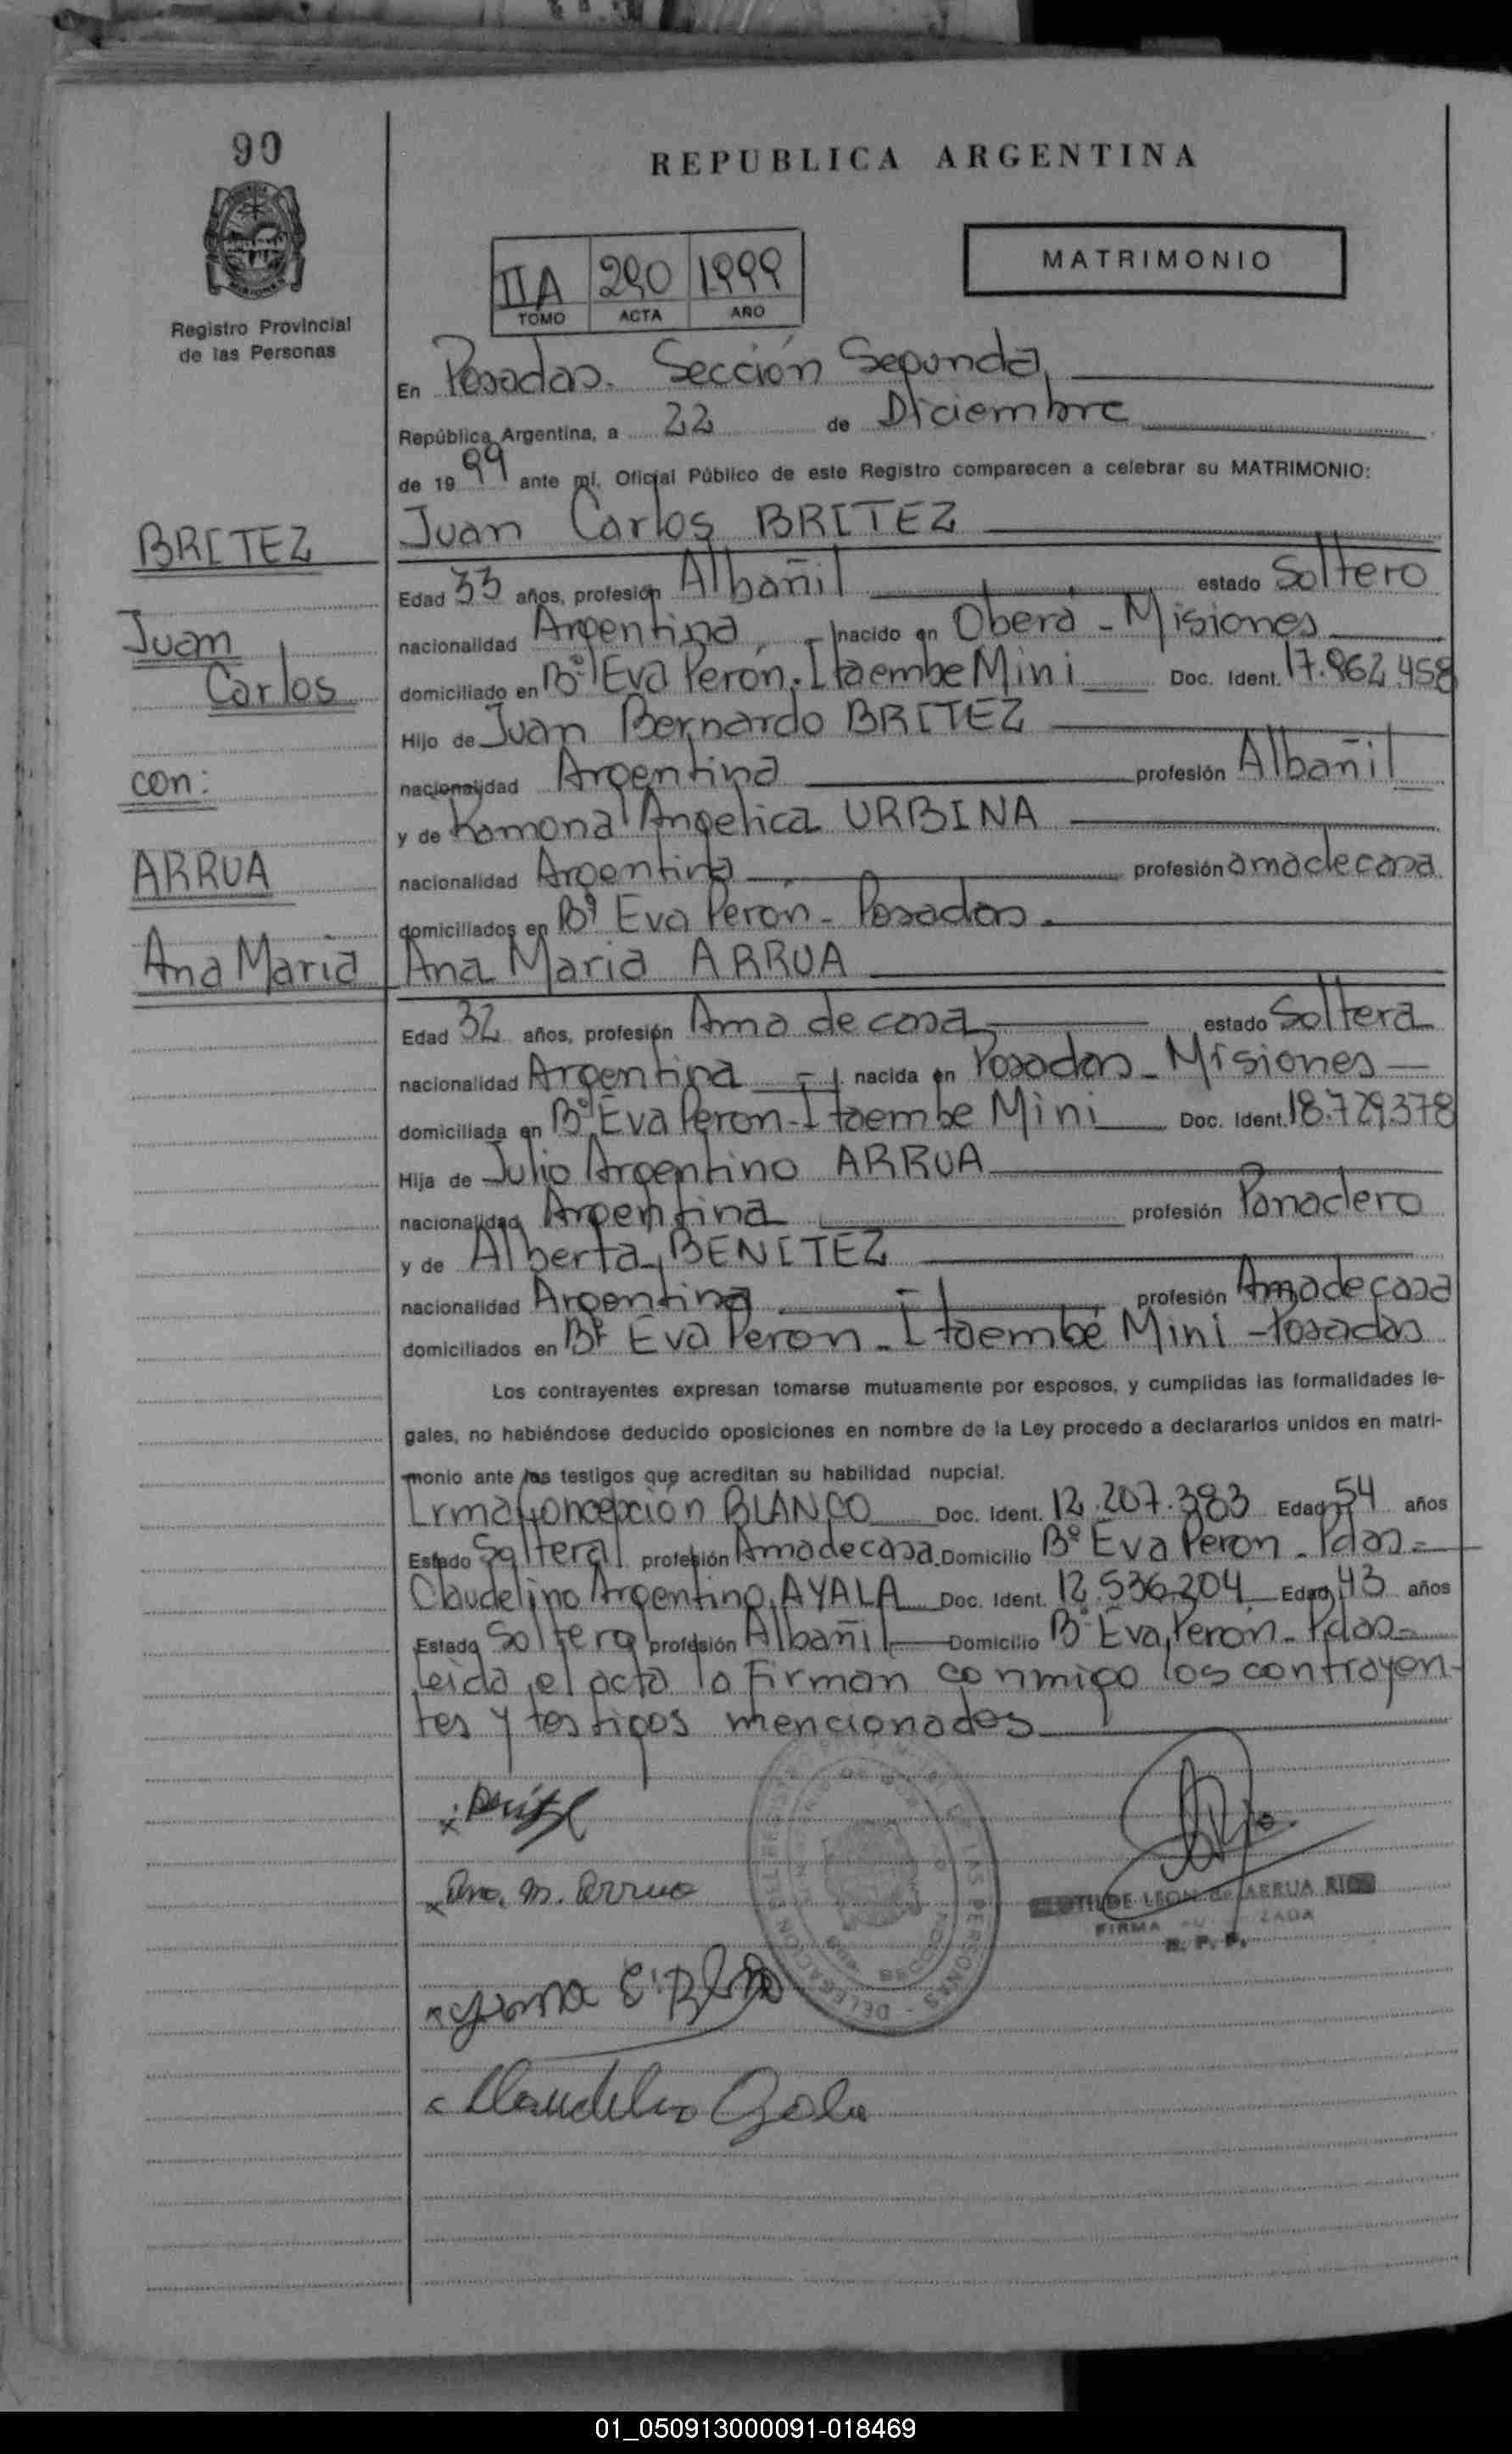 90
REPUBLICA ARGENTINA
MATRIMONIO
IIA 290 1999
TOMO ACTA AÑO
Registro Provincial
de las Personas
En Posadas. Sección Segunda,
República Argentina, a 22 de Diciembre
de 1999 ante mí, Oficial Público de este Registro comparecen a celebrar su MATRIMONIO:
BRITEZ
Juan
Carlos
con:
ARRUA
Ana Maria
Juan Carlos BRITEZ
Edad 33 años, profesión Albañil estado Soltero
nacionalidad Argentina nacido en Oberá - Misiones
domiciliado en Bº Eva Perón. Itaembe Mini Doc. Ident. 17.962.458
Hijo de Juan Bernardo BRITEZ
nacionalidad Argentina profesión Albañil
y de Ramona Angelica URBINA
nacionalidad Argentina profesión ama de casa
domiciliados en Bº Eva Perón - Posadas.
Ana Maria ARRUA
Edad 32 años, profesión Ama de casa estado Soltera
nacionalidad Argentina nacida en Posadas - Misiones
domiciliada en Bº Eva Peron - Itaembe Mini Doc. Ident. 18.729.378
Hija de Julio Argentino ARRUA
nacionalidad Argentina profesión Panadero
y de Alberta BENITEZ
nacionalidad Argentina profesión Ama de casa
domiciliados en Bº Eva Perón - Itaembé Mini - Posadas
Los contrayentes expresan tomarse mutuamente por esposos, y cumplidas las formalidades le-
gales, no habiéndose deducido oposiciones en nombre de la Ley procedo a declararlos unidos en matri-
monio ante los testigos que acreditan su habilidad nupcial.
Irma Concepción BLANCO Doc. Ident. 12.207.383 Edad 54 años
Estado Soltera profesión Ama de casa Domicilio Bº Eva Peron - Pdas -
Claudelino Argentino AYALA Doc. Ident. 12.536.204 Edad 43 años
Estado Soltero profesión Albañil Domicilio Bº Eva Perón - Pdas -
leida el acta la firman conmigo los contrayen-
tes y testigos mencionados
Ana. M. Arrua
LEON de ARRUA
FIRMA
R. P. P.
DE LAS PERSONAS - DELEGACION
01_050913000091-018469